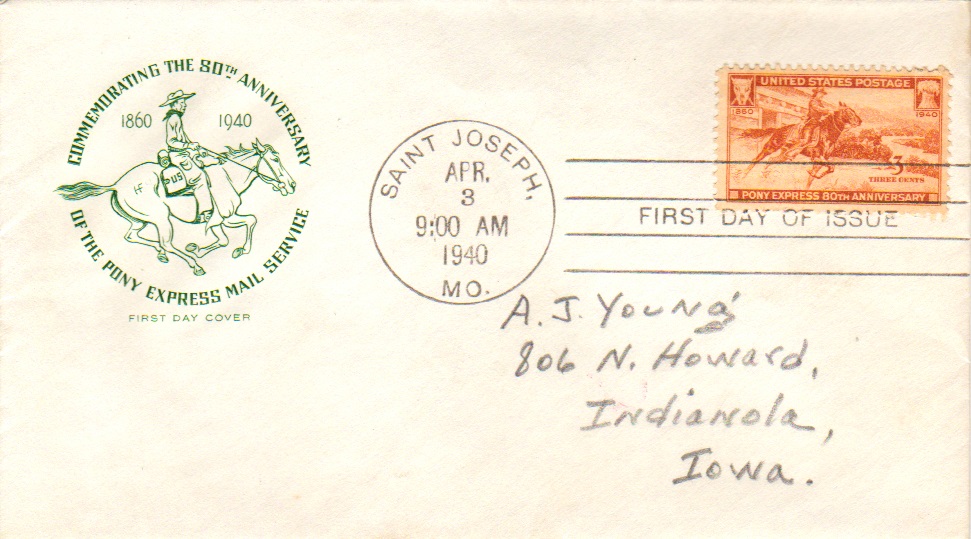 COMMEMORATING THE 80TH ANNIVERSARY
1860 1940
HF
US
OF THE PONY EXPRESS MAIL SERVICE
FIRST DAY COVER
SAINT JOSEPH,
APR.
3
9:00 AM
1940
MO.
UNITED STATES POSTAGE
1860 1940
3
THREE CENTS
PONY EXPRESS 80TH ANNIVERSARY
FIRST DAY OF ISSUE
A. J. Young
806 N. Howard,
Indianola,
Iowa.